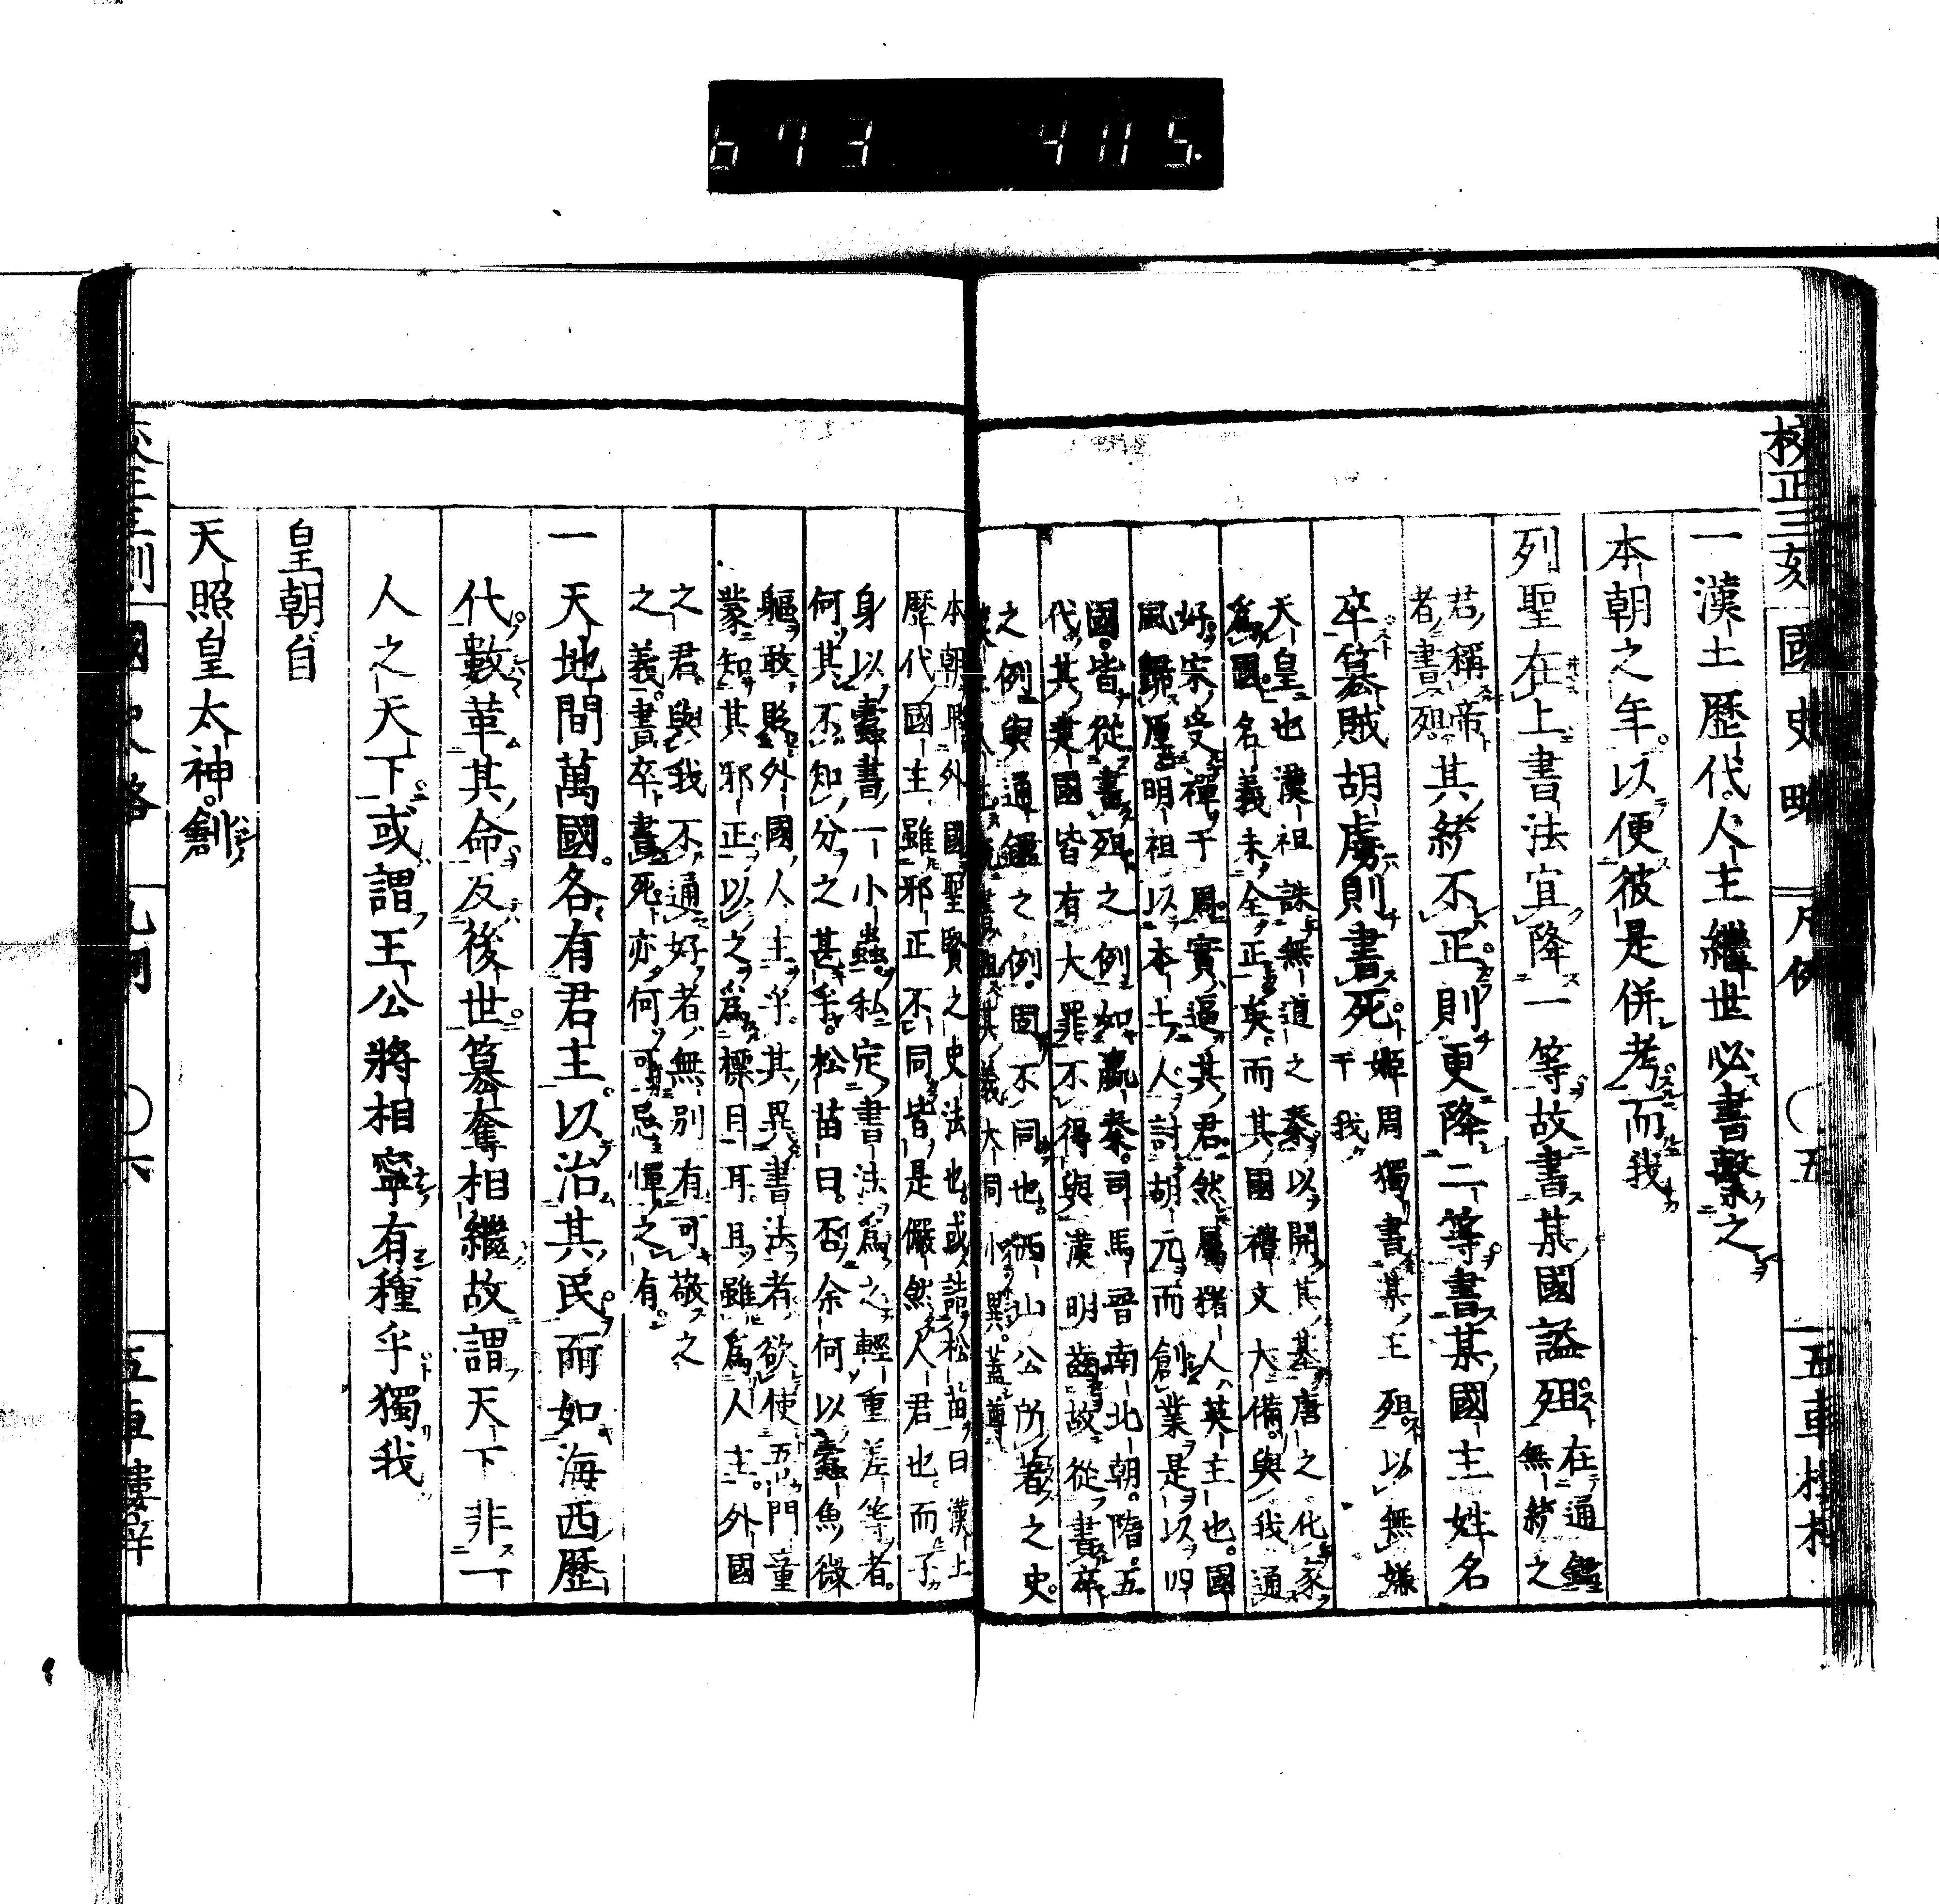 673 405.
校正三刻 國史略 凡例 〇五 五車樓
一漢土歷代人主繼世必書繫之
本朝之年以便彼是併考而我
列聖在上書法宜降一等故書某國謚殂
在通鑑
無統之
君稱帝
者書殂
其統不正則更降二等書某國主姓名
卒篡賊胡虜則書死
姬周獨書某王殂以無嫌
于我
天皇也漢祖誅無道之秦以開其基唐之化家
爲國名義未全正矣而其國禮文大備與我通
好宋受禪于周實逼其君然屬猪人英主也國
風歸厚明祖以本土人討胡元而創業是以四
國皆從書殂之例如嬴秦司馬晉南北朝隋五
代其妻國皆有大罪不得與漢明齒故從書卒
之例與通鑑之例固不同也西山公所著之史
其義大同小異蓋尊
本朝聖賢之史法也或詰松苗曰漢土
歷代國主雖邪正不同皆是儼然人君也而子
身以蠹書一小蟲私定書法爲之輕重差等者
何其不知分之甚乎松苗曰否余何以蠹魚微
軀敢貶外國人主乎其異書法者欲使吾門童
蒙知其邪正以之爲標目耳且雖爲人主外國
之君與我不通好者無別有可敬之
之義書卒書死亦何可忌憚之有
一天地間萬國各有君主以治其民而如海西歷
代數革其命及後世篡奪相繼故謂天下非一
人之天下或謂王公將相寧有種乎獨我
皇朝自
天照皇太神創
國史略 凡例 〇六 五車樓